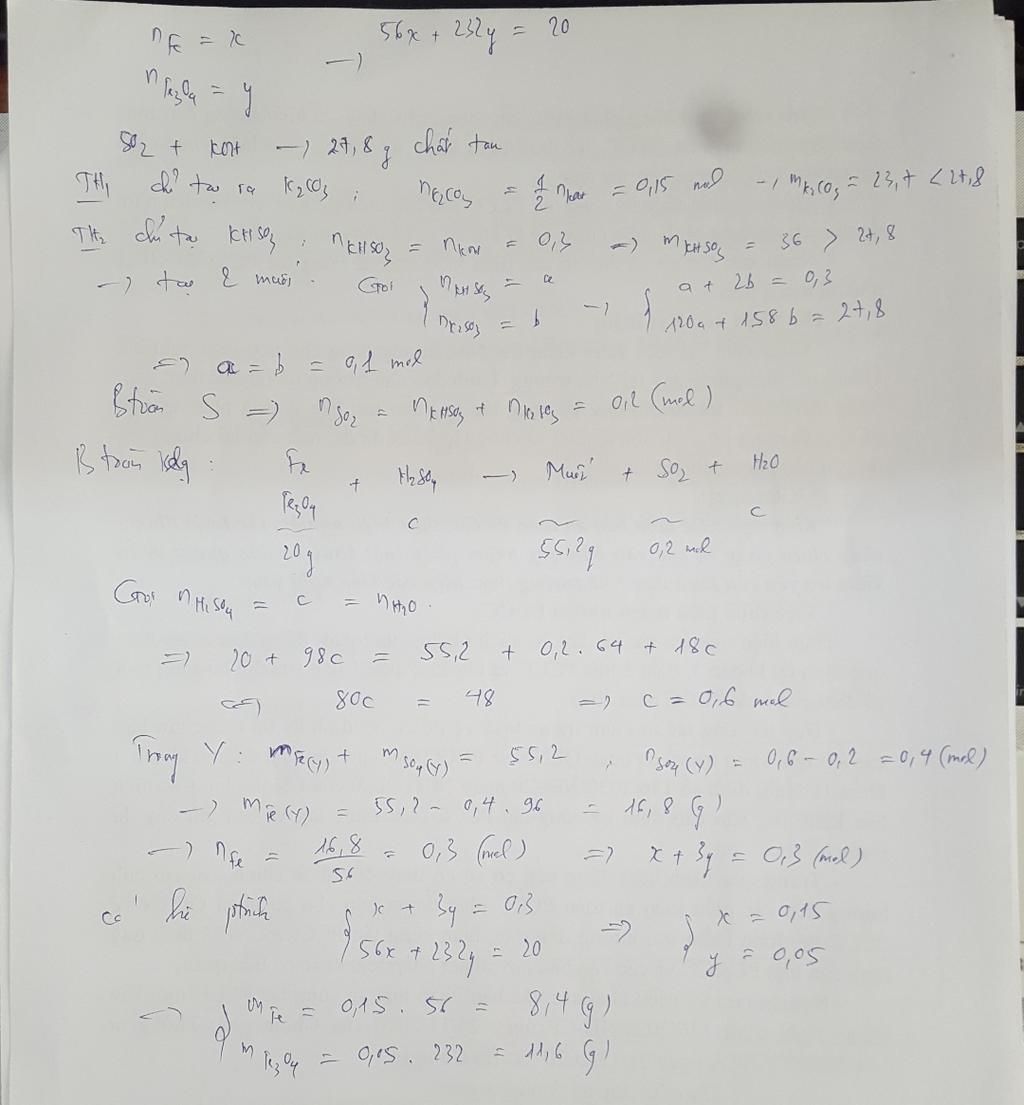 n Fe = x → 56x + 232y = 20
n Fe3O4 = y
SO2 + KOH → 27,8 g chất tan
TH1 chỉ tạo ra K2CO3 ; nK2CO3 = 1/2 nKOH = 0,15 mol → mK2CO3 = 23,7 < 27,8
TH2 chỉ tạo KHSO3 : nKHSO3 = nKOH = 0,3 => mKHSO3 = 36 > 27,8
→ tạo 2 muối. Gọi { nKHSO3 = a → { a + 2b = 0,3
nK2SO3 = b 120a + 158b = 27,8
=> a = b = 0,1 mol
B toàn S => nSO2 = nKHSO3 + nK2SO3 = 0,2 (mol)
B toàn klg : Fe + H2SO4 → Muối + SO2 + H2O
Fe3O4 c c
20g 55,2g 0,2 mol
Gọi nH2SO4 = c = nH2O.
=> 20 + 98c = 55,2 + 0,2 . 64 + 18c
<=> 80c = 48 => c = 0,6 mol
Trong Y : mFe(Y) + mSO4(Y) = 55,2 , nSO4(Y) = 0,6 - 0,2 = 0,4 (mol)
→ mFe(Y) = 55,2 - 0,4 . 96 = 16,8 (g)
→ nFe = 16,8/56 = 0,3 (mol) => x + 3y = 0,3 (mol)
có hệ ptrình { x + 3y = 0,3 => { x = 0,15
56x + 232y = 20 y = 0,05
→ { mFe = 0,15 . 56 = 8,4 (g)
mFe3O4 = 0,05 . 232 = 11,6 (g)